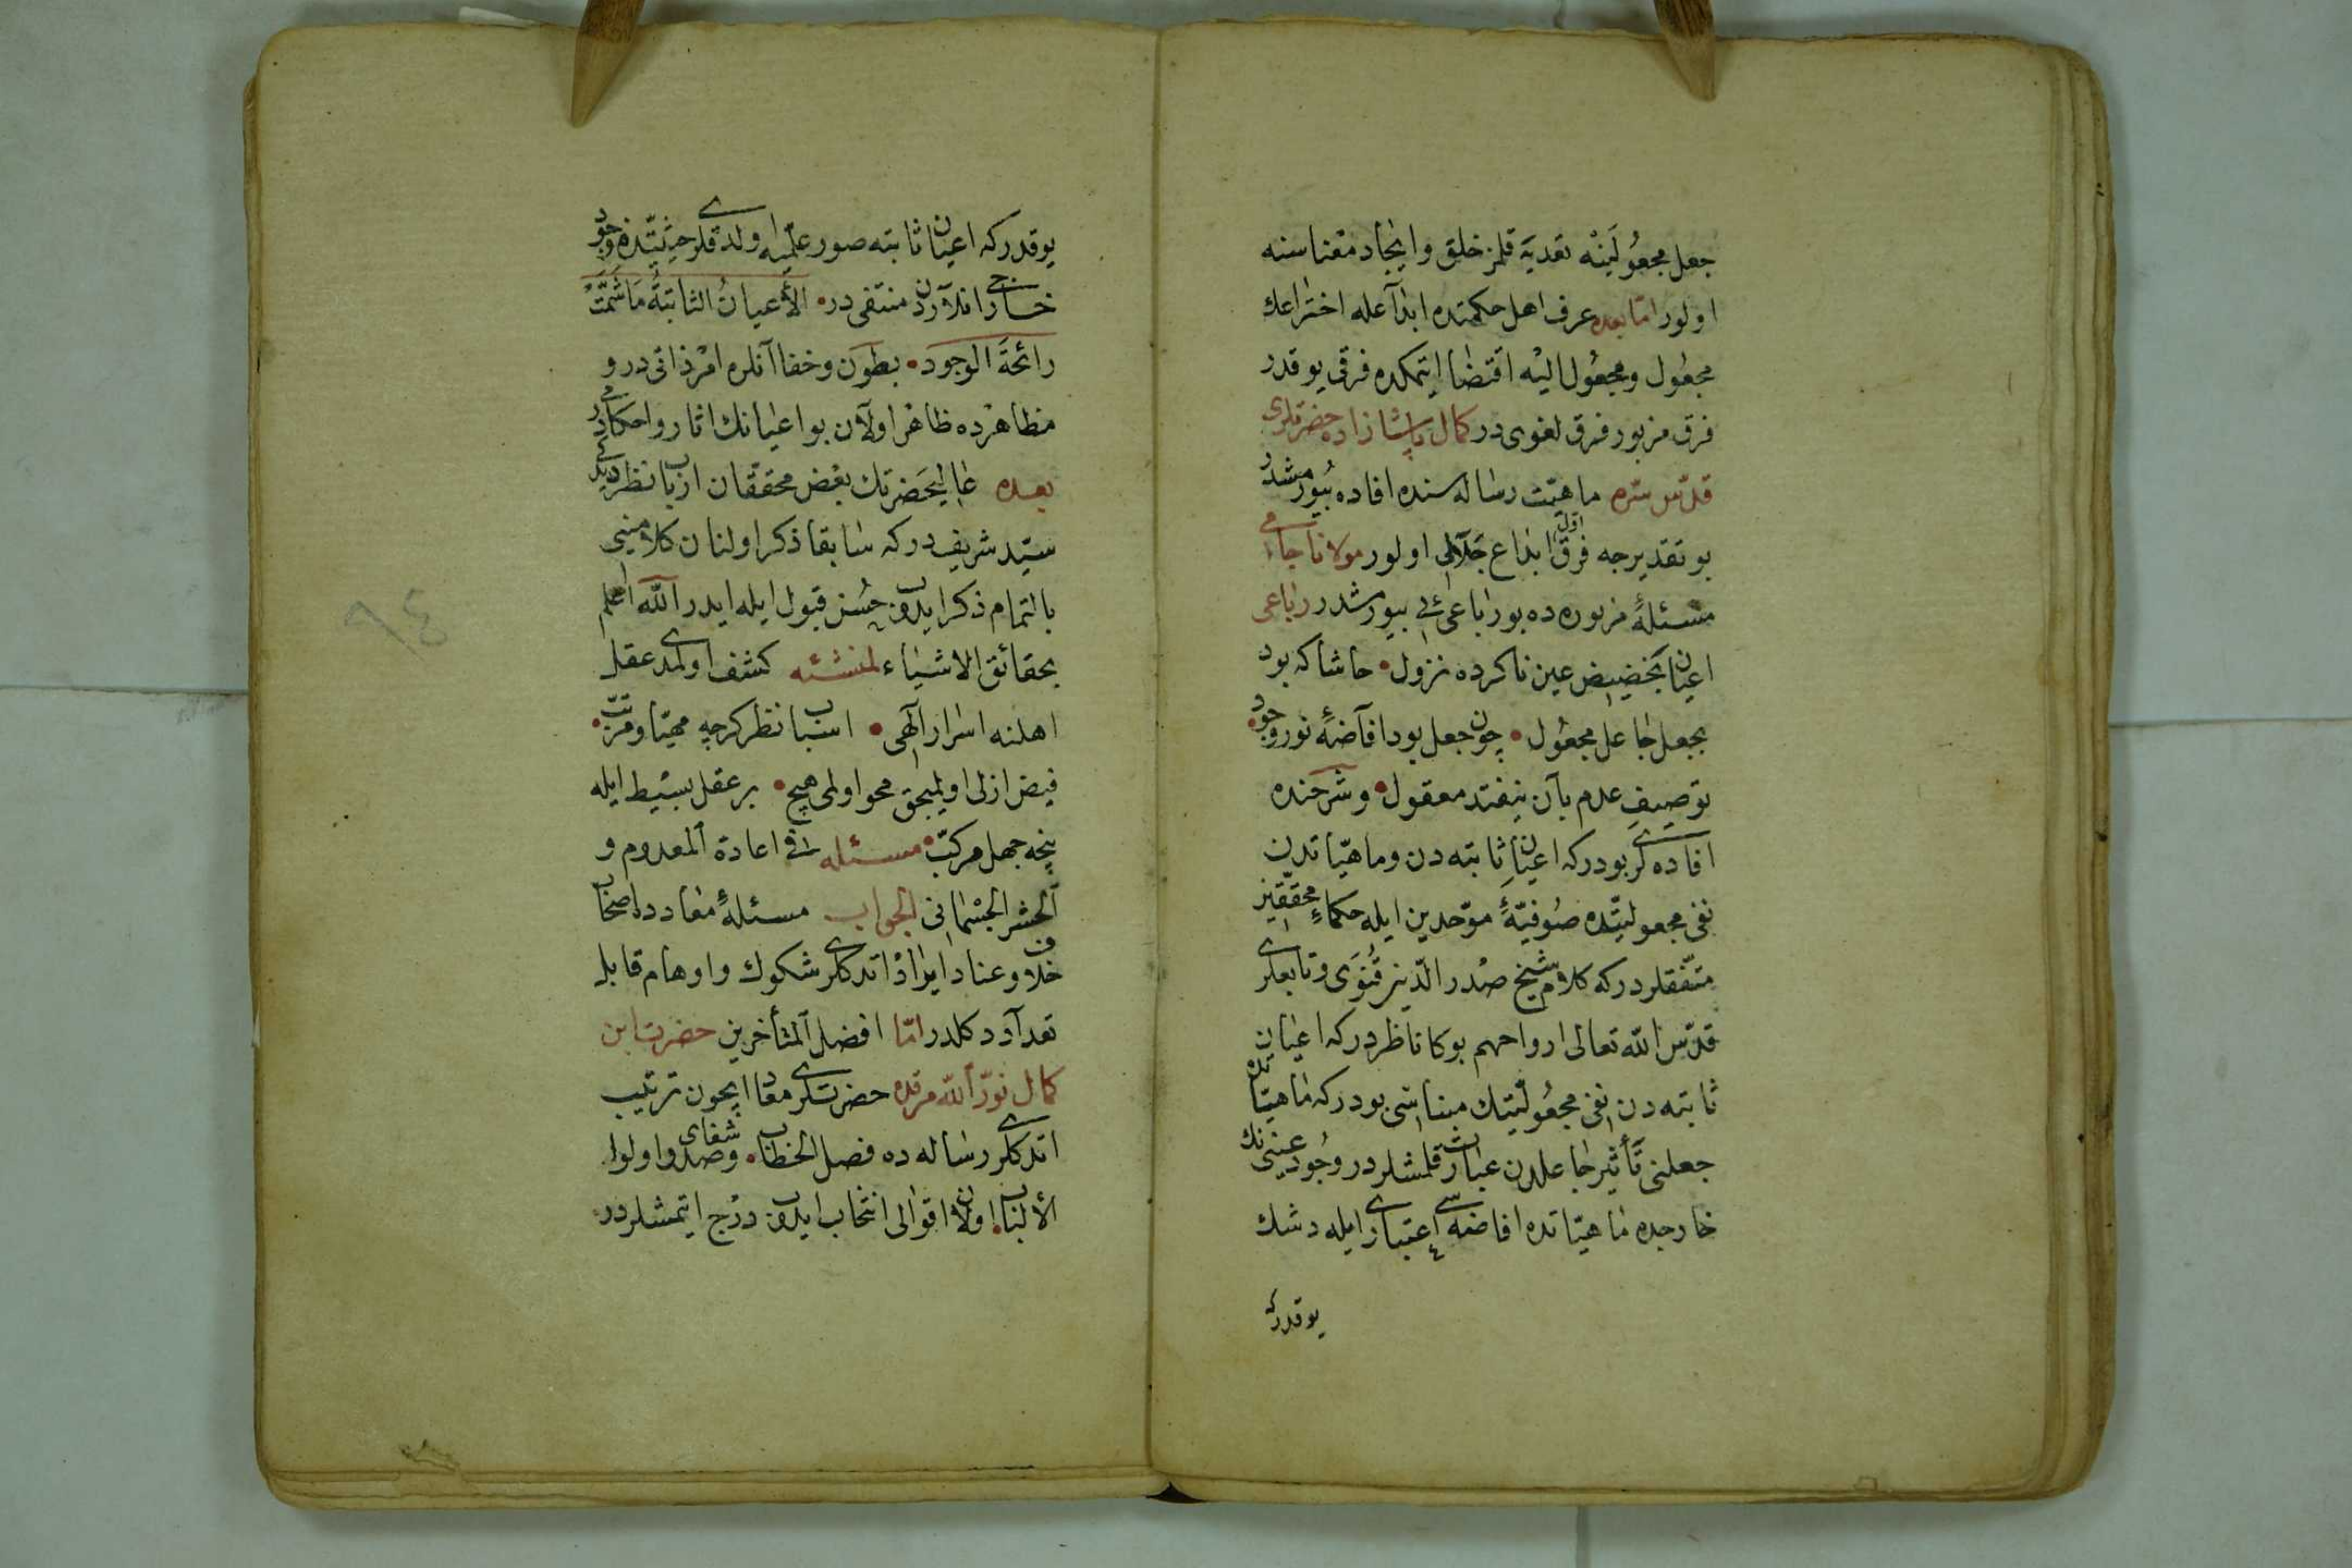 جعل مجعُولَينْه تعديَه قلمز خلق و ايجاد معْناسنه
اولور امّا بعده عرف اهل حكمتده ابداعله اختراعك
مجعُول و مجعُول اليْه اقتضا ايتمكده فرقى يوقدر
فرق مزبور فرق لغوى در كمال پاشا زاده حضرتلرى
قدّس سرّه ماهيّت رساله سنده افاده بيُورمشدر
بو تقديرجه فرق اوّل ابداع جلالى اولور مولانا جامى
مسئلهٔ مزبوره ده بو رباعى ئى بيورمشدر رباعى
اعيان بحضيض عين ناكرده نزول • حاشا كه بود
بجعل جاعل مجعُول • چون جعل بود افاضهٔ نور وجود •
توصيفِ عدم بآن نيفتد معقول • و شرحنده
افاده لرى بودركه اعيانِ ثابته دن و ماهيّاتدن
نفى مجعوليّتده صُوفيّهٔ موّحدين ايله حكماءِ محقّقين
متّفقلردركه كلام شيخ صدر الدّين قنوَى و تابعلرى
قدّس الله تعالى ارواحهم بوكا ناظردركه اعيان
ثابته دن نفى مجعُوليّتك مبناسى بودركه ماهيّاتده
جعلنى تأثير جاعلدن عبارت قلمشلردر وجُود عينىنك
خارجده ماهيّاتده افاضه سى اعتبارى ايله دشك
يوقدركه
يوقدركه اعيان ثابته صور علميّه اولدقلرى حيثيّتده وجود
خارج انلاردن منتفى در • الأعيانُ الثابتةُ مَا شَمَّتْ
رائحَةَ الوجود • بطون و خفا آنلره امْر ذاتى در و
مظاهرْده ظاهرْ اولان بو اعيانك اثار و احكامى در
بعده عاليحَضرتك بعْض محققان ارباب نظر ديدكى
سيّد شريف دركه سابقا ذكر اولنان كلامنى
بالتمام ذكر ايدوب حُسن قبول ايله ايدر الله اعلم
بحقائق الاشياء لمنشئه كشف اولمدى عقل
اهلنه اسرار الٓهى • اسباب نظر كرچه مهيّا و مرتّب •
فيض ازلى اولميجق محو اولمى هيچ • بر عقل بسيْط ايله
نيجه جهل مركّب • مسئله فى اعادة المعدوم و
الحشر الجسْمانى الجواب مسئلهٔ معادده اصحاب
خلاف و عناد ايرادْ اتدكلرى شكوك و اوهام قابل
تعداد دكلدر امّا افضل المتأخرين حضرت ابن
كمال نوّر الله مرقده حضرتلرى معاد ايچون ترتيب
اتدكلرى رساله ده فصل الخطاب • و شفاى صدور اولوا
الألباب • اولان اقوالى انتخاب ايدوب درْج ايتمشلردر